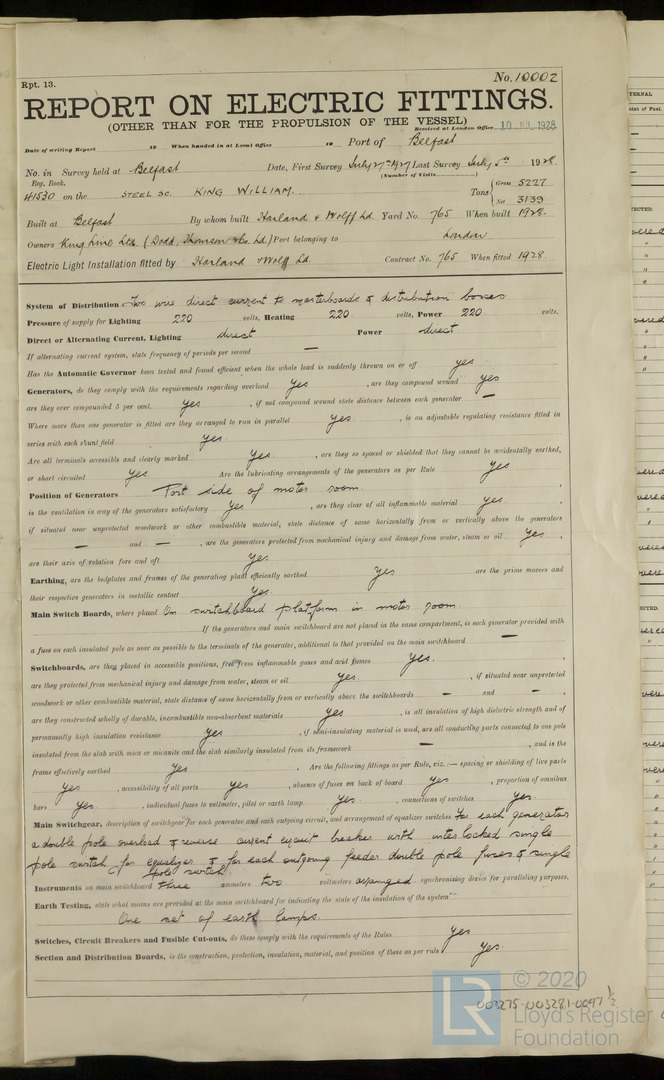 Rpt. 13.
No. 10002
REPORT ON ELECTRIC FITTINGS.
(OTHER THAN FOR THE PROPULSION OF THE VESSEL)
Received at London Office 10 JUL 1928
Date of writing Report 19 When handed in at Local Office 19 Port of Belfast
No. in Survey held at Belfast Date, First Survey July 27th 1927 Last Survey July 5th 1928
Reg. Book. (Number of Visits)
41530 on the STEEL SC. KING WILLIAM. Tons Gross 5227
Net 3139
Built at Belfast By whom built Harland & Wolff Ld. Yard No. 765 When built 1928.
Owners King Line Ltd. (Dodd, Thomson & Co. Ld.) Port belonging to London
Electric Light Installation fitted by Harland & Wolff Ld. Contract No. 765 When fitted 1928.
System of Distribution Two wire direct current to masterboards & distribution boxes
Pressure of supply for Lighting 220 volts, Heating 220 volts, Power 220 volts.
Direct or Alternating Current, Lighting direct Power direct
If alternating current system, state frequency of periods per second —
Has the Automatic Governor been tested and found efficient when the whole load is suddenly thrown on or off yes
Generators, do they comply with the requirements regarding overload yes , are they compound wound yes
are they over compounded 5 per cent. yes , if not compound wound state distance between each generator —
Where more than one generator is fitted are they arranged to run in parallel yes. , is an adjustable regulating resistance fitted in
series with each shunt field yes.
Are all terminals accessible and clearly marked yes. , are they so spaced or shielded that they cannot be accidentally earthed,
or short circuited yes. Are the lubricating arrangements of the generators as per Rule yes
Position of Generators Port side of motor room.
is the ventilation in way of the generators satisfactory yes , are they clear of all inflammable material yes ,
if situated near unprotected woodwork or other combustible material, state distance of same horizontally from or vertically above the generators
— and — , are the generators protected from mechanical injury and damage from water, steam or oil yes ,
are their axis of rotation fore and aft yes
Earthing, are the bedplates and frames of the generating plant efficiently earthed yes are the prime movers and
their respective generators in metallic contact yes.
Main Switch Boards, where placed On switchboard platform in motor room.
If the generators and main switchboard are not placed in the same compartment, is each generator provided with
a fuse on each insulated pole as near as possible to the terminals of the generator, additional to that provided on the main switchboard —
Switchboards, are they placed in accessible positions, free from inflammable gases and acid fumes yes. ,
are they protected from mechanical injury and damage from water, steam or oil yes. , if situated near unprotected
woodwork or other combustible material, state distance of same horizontally from or vertically above the switchboards — and — ,
are they constructed wholly of durable, incombustible non-absorbent materials yes , is all insulation of high dielectric strength and of
permanently high insulation resistance yes , if semi-insulating material is used, are all conducting parts connected to one pole
insulated from the slab with mica or micanite and the slab similarly insulated from its framework — , and is the
frame effectively earthed yes . Are the following fittings as per Rule, viz. :— spacing or shielding of live parts
yes , accessibility of all parts yes , absence of fuses on back of board yes , proportion of omnibus
bars yes. , individual fuses to voltmeter, pilot or earth lamp yes. , connections of switches yes.
Main Switchgear, description of switchgear for each generator and each outgoing circuit, and arrangement of equalizer switches For each generator
a double pole overload & reverse current circuit breaker with interlocked single
pole switch for equalizer & for each outgoing feeder double pole fuses & single
pole switch.
Instruments on main switchboard three ammeters two voltmeters arranged synchronizing device for paralleling purposes.
Earth Testing, state what means are provided at the main switchboard for indicating the state of the insulation of the system
One set of earth lamps.
Switches, Circuit Breakers and Fusible Cut-outs, do these comply with the requirements of the Rules yes
Section and Distribution Boards, is the construction, protection, insulation, material, and position of these as per rule yes.
© 2020
003275-003281-0097 1/2
LR
Lloyd's Register
Foundation